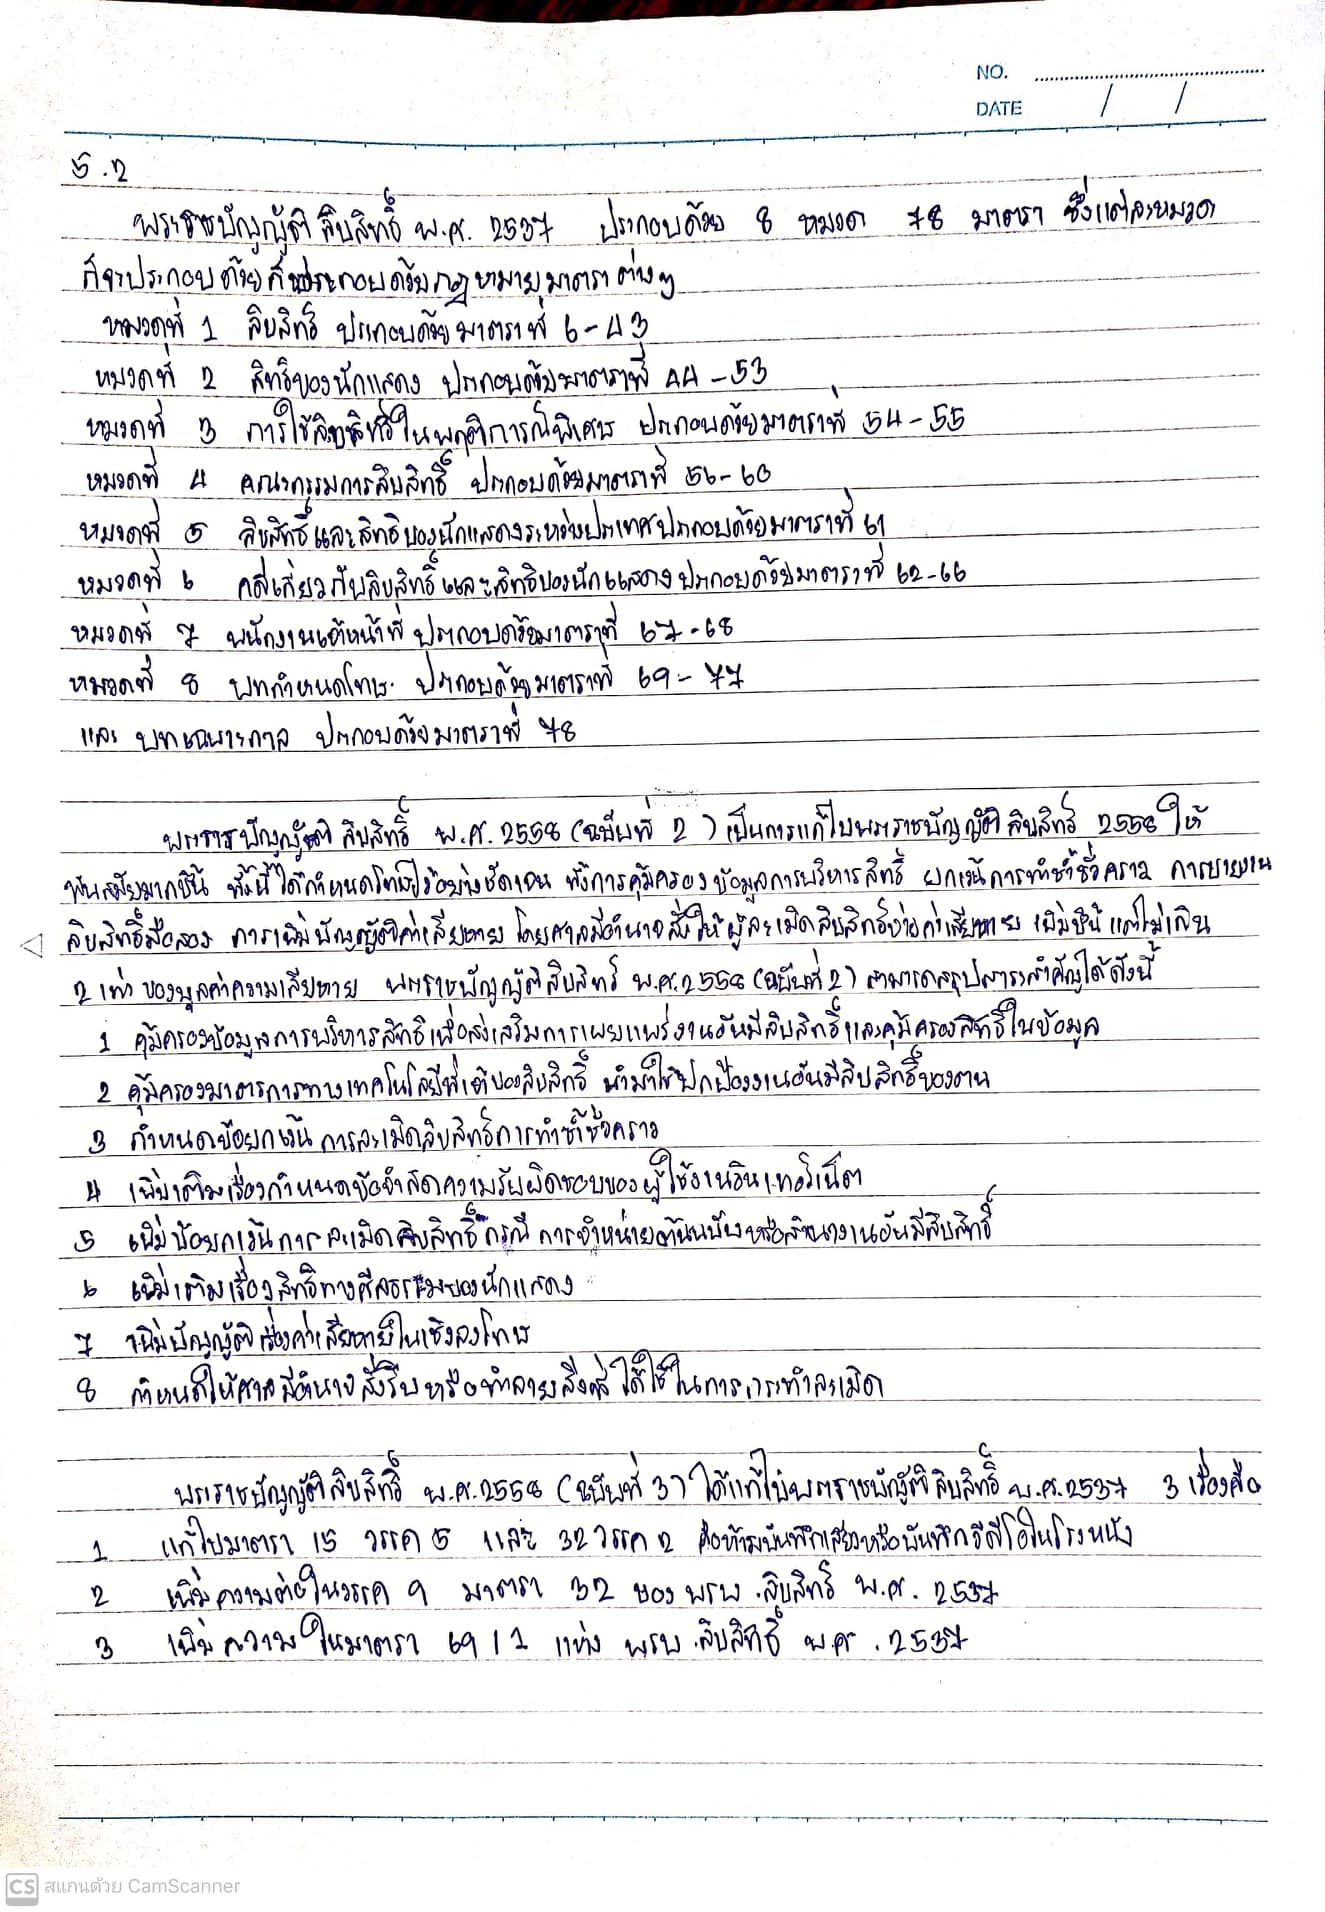 NO.
DATE / /
5.2
พระราชบัญญัติลิขสิทธิ์ พ.ศ. 2537 ประกอบด้วย 8 หมวด 78 มาตรา ซึ่งแต่ละหมวด
ก็จะประกอบด้วย ประกอบด้วยกฎหมายมาตราต่างๆ
หมวดที่ 1 ลิขสิทธิ์ ประกอบด้วยมาตราที่ 6-43
หมวดที่ 2 สิทธิของนักแสดง ประกอบด้วยมาตราที่ 44-53
หมวดที่ 3 การใช้ลิขสิทธิ์ในพฤติการณ์พิเศษ ประกอบด้วยมาตราที่ 54-55
หมวดที่ 4 คณะกรรมการลิขสิทธิ์ ประกอบด้วยมาตราที่ 56-60
หมวดที่ 5 ลิขสิทธิ์และสิทธิของนักแสดงระหว่างประเทศประกอบด้วยมาตราที่ 61
หมวดที่ 6 คดีเกี่ยวกับลิขสิทธิ์และสิทธิของนักแสดงประกอบด้วยมาตราที่ 62-66
หมวดที่ 7 พนักงานเจ้าหน้าที่ ประกอบด้วยมาตราที่ 67-68
หมวดที่ 8 บทกำหนดโทษ ประกอบด้วยมาตราที่ 69-77
และ บทเฉพาะกาล ประกอบด้วยมาตราที่ 78
พระราชบัญญัติลิขสิทธิ์ พ.ศ. 2558 (ฉบับที่ 2) เป็นการแก้ไขพระราชบัญญัติลิขสิทธิ์ 2558 ให้
ทันสมัยมากขึ้น ทั้งนี้ได้กำหนดโทษไว้อย่างชัดเจน ทั้งการคุ้มครองข้อมูลการบริหารสิทธิ์ ยกเว้นการทำซ้ำชั่วคราว การขายงาน
ลิขสิทธิ์มือสอง การเพิ่มบัญญัติค่าเสียหาย โดยศาลมีอำนาจสั่งให้ผู้ละเมิดลิขสิทธิ์จ่ายค่าเสียหาย เพิ่มขึ้นแต่ไม่เกิน
2 เท่า ของมูลค่าความเสียหาย พระราชบัญญัติลิขสิทธิ์ พ.ศ.2558 (ฉบับที่ 2) สามารถสรุปสาระสำคัญได้ดังนี้
1 คุ้มครองข้อมูลการบริหารสิทธิเพื่อส่งเสริมการเผยแพร่งานอันมีลิขสิทธิ์และคุ้มครองสิทธิ์ในข้อมูล
2 คุ้มครองมาตรการทางเทคโนโลยีที่เจ้าของลิขสิทธิ์ นำมาใช้ปกป้องงานอันมีลิขสิทธิ์ของตน
3 กำหนดข้อยกเว้น การละเมิดลิขสิทธิ์การทำซ้ำชั่วคราว
4 เพิ่มเติมเรื่องกำหนดข้อจำกัดความรับผิดชอบของผู้ใช้งานอินเทอร์เน็ต
5 เพิ่มข้อยกเว้นการละเมิดลิขสิทธิ์กรณี การจำหน่ายต้นฉบับหรือสำเนางานอันมีลิขสิทธิ์
6 เพิ่มเติมเรื่องสิทธิทางศีลธรรมของนักแสดง
7 เพิ่มบัญญัติเรื่องค่าเสียหายในเชิงลงโทษ
8 กำหนดให้ศาลมีอำนาจสั่งริบหรือทำลายสิ่งที่ได้ใช้ในการกระทำละเมิด
พระราชบัญญัติลิขสิทธิ์ พ.ศ.2558 (ฉบับที่ 3) ได้แก้ไขพระราชบัญญัติลิขสิทธิ์ พ.ศ.2537 3 เรื่องคือ
1 แก้ไขมาตรา 15 วรรค 5 และ 32 วรรค 2 คือห้ามบันทึกเสียงหรือบันทึกวีดีโอในโรงหนัง
2 เพิ่มความต่อในวรรค 9 มาตรา 32 ของ พรบ.ลิขสิทธิ์ พ.ศ. 2537
3 เพิ่มความในมาตรา 69/1 แห่ง พรบ.ลิขสิทธิ์ พ.ศ. 2537
CS สแกนด้วย CamScanner